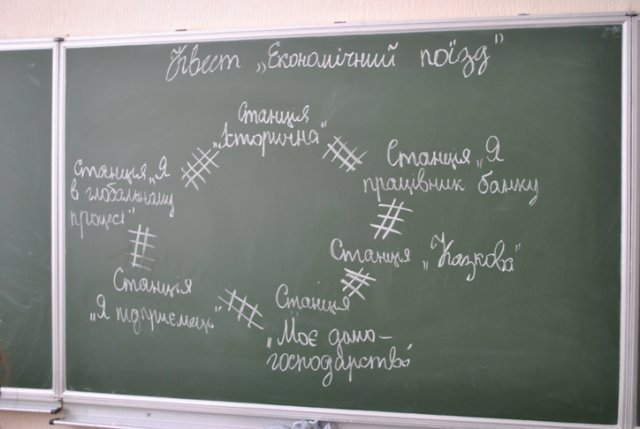 Квест „Економічний поїзд"
Станція
„Історична"
Станція „Я
працівник банку
Станція „Казкова"
Станція
„Моє домо-
господарство
Станція
„Я підприємець"
Станція „Я
в глобальному
процесі"